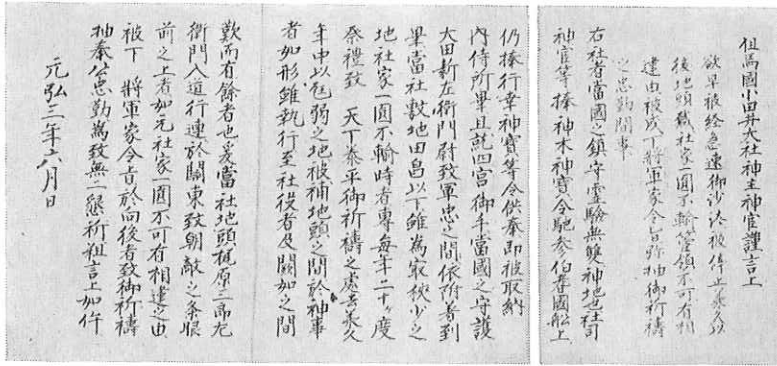 但馬國小田井大社神主神官謹言上
欲早被經急速御沙汰被停止承久以
後地頭職社家一圓不輸管領不可有相
違由被成下將軍家令旨弥抽御祈禱
之忠勤間事
右社者當國之鎮守霊驗無雙神地也社司
神官等捧神木神寶令馳参伯耆國舩上
仍捧行幸神寳等令供奉即被取納
内侍所畢且託四宮御手當國之守護
大田新左衛門尉致軍忠之間依附着到
畢當社敷地田畠以下雖為最狭少之
地社家一圓不輸時者專每年二十ヶ度
祭禮致 天下泰平御祈禱之處去承久
年中以尫弱之地被補地頭之間於神事
者如形雖執行至社役者及闕如之間
歎而有餘者也爰當社地頭梶原三郎左
衛門入道行連於關東致朝敵之条眼
前之上者如元社家一圓不可有相違之由
被下 將軍家令旨於向後者致御祈禱
抽奉公忠勤為致無二懇祈粗言上如件
元弘三年六月日